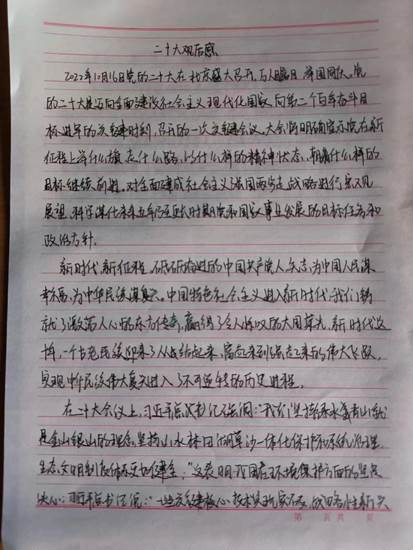 二十大观后感
2022年10月16日党的二十大在北京盛大召开,万人瞩目,举国同庆。党
的二十大是迈向全面建设社会主义现代化国家,向第二个百年奋斗目
标进军的关键时刻,召开的一次关键会议。大会将明确宣示党在新
征程上举什么旗、走什么路、以什么样的精神状态、朝着什么样的
目标继续前进。对全面建成社会主义强国两步走战略进行宏观
展望,科学谋划未来五年乃至更长时期党和国家事业发展的目标任务和
政治方针。
新时代新征程,砥砺奋进的中国共产党人矢志为中国人民谋
幸福,为中华民族谋复兴。中国特色社会主义进入新时代,我们铸
就了激荡人心的东方传奇,赢得了令人惊叹的大国荣光。新时代这
个古老民族迎来了从站起来、富起来到强起来的伟大飞跃,
实现中华民族伟大复兴进入了不可逆转的历史进程。
在二十大会议上,习近平总书记强调:“我们坚持绿水青山就
是金山银山的理念,坚持山水林田湖草沙一体化保护和系统治理,
生态文明制度体系更加健全。”这表明我国在环境保护方面的坚定
决心;习近平总书记说:“一些关键核心技术实现突破,战略性新兴